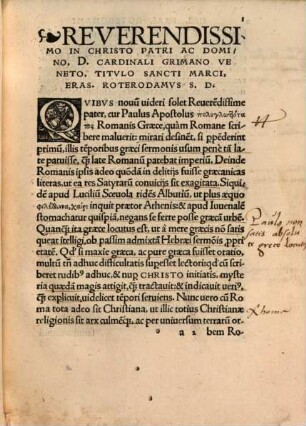 REVERENDISSI/
MO IN CHRISTO PATRI AC DOMI/
NO, D. CARDINALI GRIMANO VE
NETO, TITVLO SANCTI MARCI,
ERAS. ROTERODAMVS S. D.
QVIBVS nouũ uideri solet Reuerẽdissime
pater, cur Paulus Apostolus
Romanis Græce, quàm Romane scri
bere maluerit: mirari desinẽt, si ppẽderint
primũ, illis tẽporibus græci sermonis usum penè tã la
te patuisse, q̃ late Romanũ patebat imperiũ. Deinde
Romanis ipsis adeo quodã in delitijs fuisse græcanicas
literas, ut ea res Satyrarũ conuicijs sit exagitata. Siqui
dẽ apud Luciliũ Scæuola ridẽs Albutiũ, ut plus æquo
χαῖρε inquit prætor Athenis: & apud Iuuenalẽ
stomachatur quispiã, negans se ferre posse græcã urbẽ.
Quanq̃ ita græce locutus est, ut à mere græcis nõ satis
queat itelligi, ob passim admixtã Hebræi sermõis, ppri
etatẽ. Qd' si maxie græca, ac pure græca fuisset oratio,
multũ tñ adhuc difficultatis supesset lectoriqd cũ scri
beret rudib' adhuc, & nup CHRISTO initiatis, myste
ria quædã magis attigit, q̃ tractauit: & indicauit ueri',
q̃ explicuit, uidelicet tẽpori seruiens. Nunc uero cũ Ro
ma tota adeo sit Christiana, ut illic totius Christianæ
religionis sit arx culmẽq̃, ac per uniuersum terrarũ or-
a 2 bem Ro-
Paulo non
satis absolu
te grece